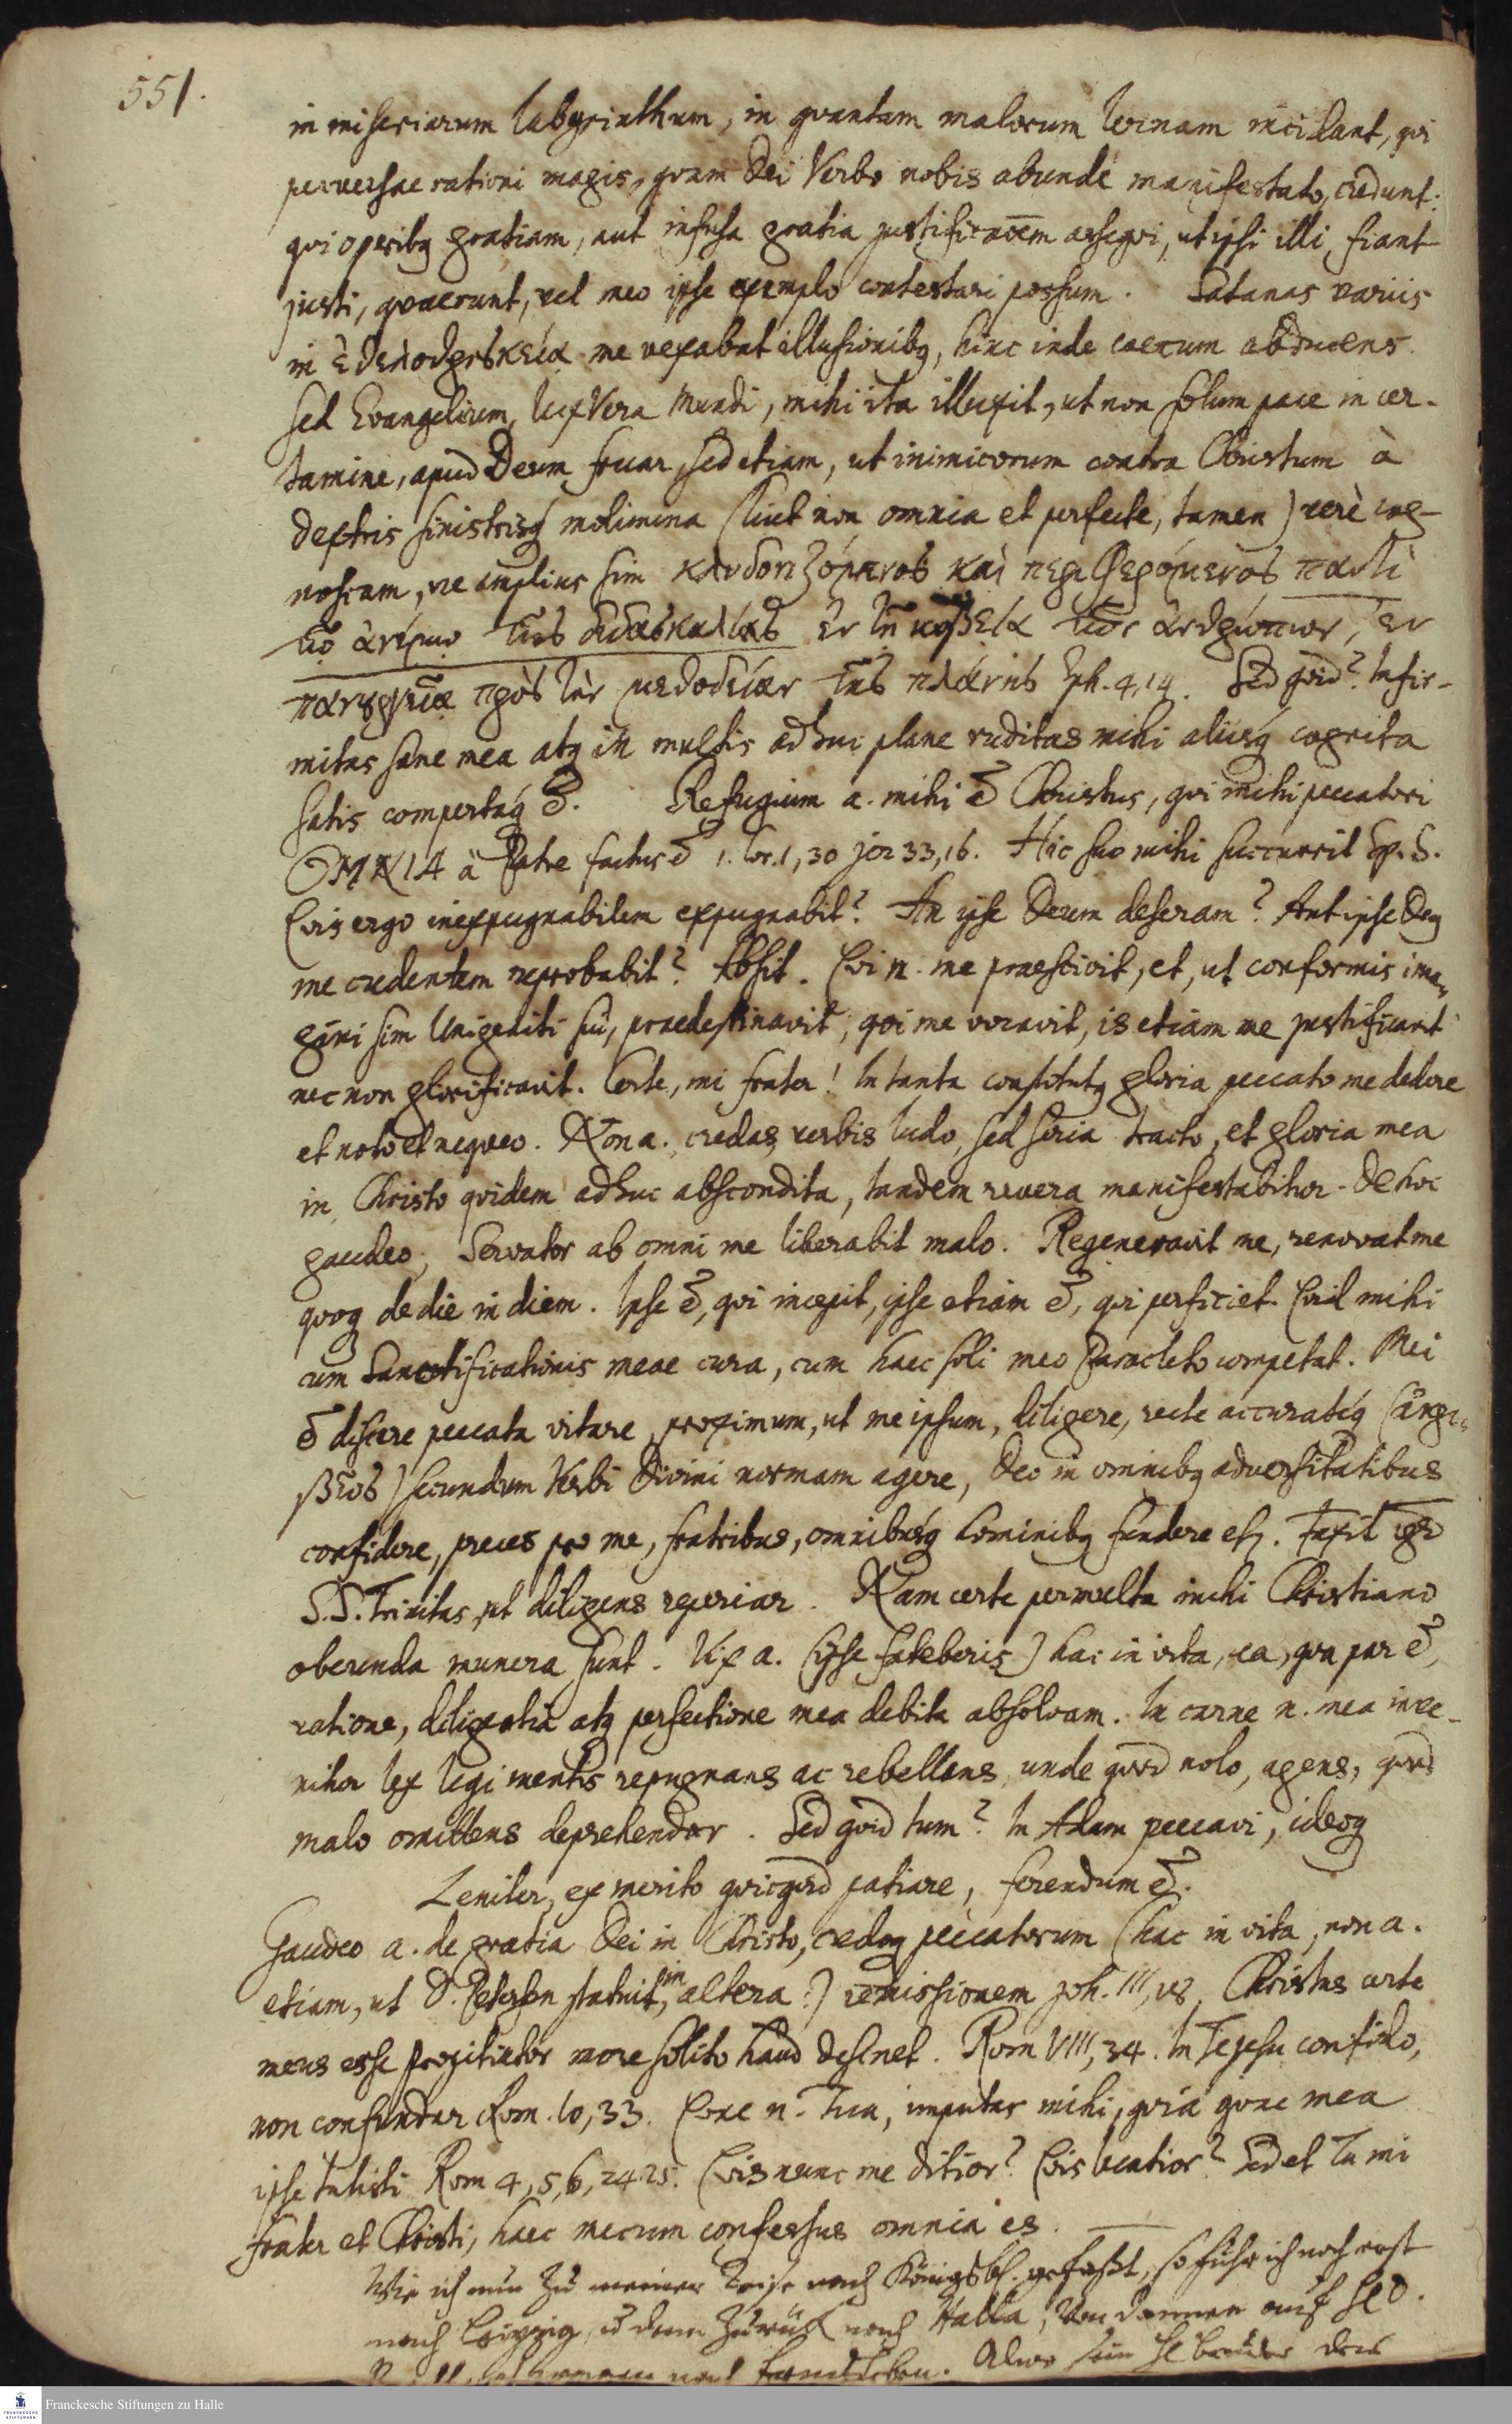 551.
in miseriarum labyrinthum, in quantam malorum lernam incidant, qui
perversae rationi magis, quam Dei Verbo nobis abunde manifestato, credunt:
qui operibq gratiam, aut infusa gratia justificacem assequi, ut ipsi illi fiant
justi, quaerunt, vel meo ipse exemplo contestari possum. Satanas variis
in ἐθελοθρησκείᾳ me vexabat illusionibq, hinc inde caecum abducens.
sed Evangelium, lux Vera Mundi, mihi ita illuxit, ut non solum pace in cer-
tamine, apud Deum fruar, sed etiam, ut inimicorum contra Christum à
dextris sinistrisq molimina (licet non omnia et perfecte, tamen) verè cog-
noscam, ne amplius sim κλυδονιζόμενος καὶ περιφερόμενος παντὶ
τῷ ἀνέμῳ τῆς διδασκαλίας ἐν τῇ κυβείᾳ τῶν ἀνθρώπων, ἐν
πανουργίᾳ πρὸς τὴν μεθοδείαν τῆς πλάνης Eph. 4, 14. Sed quid? Infir-
mitas sane mea atq in multis adhuc plane ruditas mihi aliisq cognita
satis compertaq ē. Refugium a. mihi ē Christus, qui mihi peccatori
OMNIA à Patre factus ē 1. Cor. 1, 30 Jer 33, 16. Hic suo mihi succurrit Sp. S.
Quis ergo inexpugnabilem expugnabit? An ipse Deum deseram? Aut ipse Deq
me credentem reprobabit? Absit. Qui n. me praescivit, et, ut conformis ima-
gini sim Unigeniti sui, praedestinavit, qui me vocavit, is etiam me justificavit
nec non glorificavit. Certe, mi frater! In tanta constitutq gloria peccato me dedere
et nolo et nequeo. Non a. credas, verbis ludo, sed seria tracto, et gloria mea
in Christo quidem adhuc abscondita, tandem revera manifestabitur. De hoc
gaudeo, Servator ab omni me liberabit malo. Regeneravit me, renovat me
quoq de die in diem. Ipse ē, qui incepit, ipse etiam ē, qui perficiet. Quid mihi
cum Sanctificationis meae cura, cum haec soli meo Paracleto competat. Mei
ē discere peccata vitare, proximum, ut me ipsum, diligere, recte accurateq (ἀκρι-
βῶς) secundum Verbi Divini normam agere, Deo in omnibq adversitatibus
confidere, preces pro me, fratribus, omnibusq hominibq fundere etc. Faxit
S.S. Trinitas, ut diligens reperiar. Nam certe permulta mihi Christiano
obeunda munera sunt. Vix a. (ipse fateberis) hac in vita, ea, qua par ē,
ratione, diligentia atq perfectione mea debita absolvam. In carne n. mea inve-
nitur lex legi mentis repugnans ac rebellans, unde quod nolo, agens, quod
malo omittens deprehendor. Sed quid tum? In Adam peccavi, ideoq
Leniter, ex merito quicquid patiare, ferendum ē.
Gaudeo a. de gratia Dei in Christo, credoq peccatorum (hac in vita, non a.
etiam, ut D. Petersen statuit, in altera:) remissionem Joh. III, 18. Christus certe
meus esse propitiator more solito haud desinet. Rom VIII, 34. In Te Jesu confido,
non confundar Rom. 10, 33. Quae n. Tua, imputas mihi, quia quae mea
ipse tulisti Rom 4, 5, 6, 24 25. Quis nunc me ditior? Quis beatior? Sed et Tu mi
frater et Christi, haec mecum confessus omnia es.
Wie ich nun zu meiner Reise nach Königsb. gefaßt, so fuhr ich noch erst
nach Leipzig, u dann zurück nach Halla, von dannen auf
Alwo sein Bruder der
Franckesche Stiftungen zu Halle